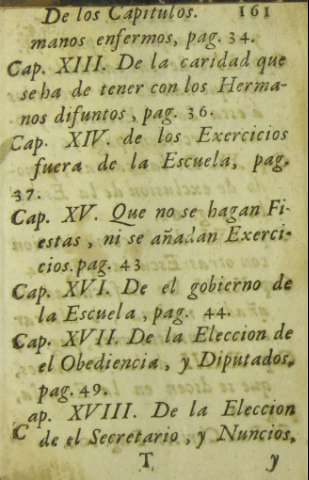 De los Capitulos. 161
manos enfermos, pag. 34.
Cap. XIII. De la caridad que
se ha de tener con los Herma-
nos difuntos, pag. 36.
Cap. XIV. de los Exercicios
fuera de la Escuela, pag.
37.
Cap. XV. Que no se hagan Fi-
estas, ni se añadan Exerci-
cios. pag. 43
Cap. XVI. De el gobierno de
la Escuela, pag. 44.
Cap. XVII. De la Eleccion de
el Obediencia, y Diputados,
pag. 49.
Cap. XVIII. De la Eleccion
de el Secretario, y Nuncios,
T. y